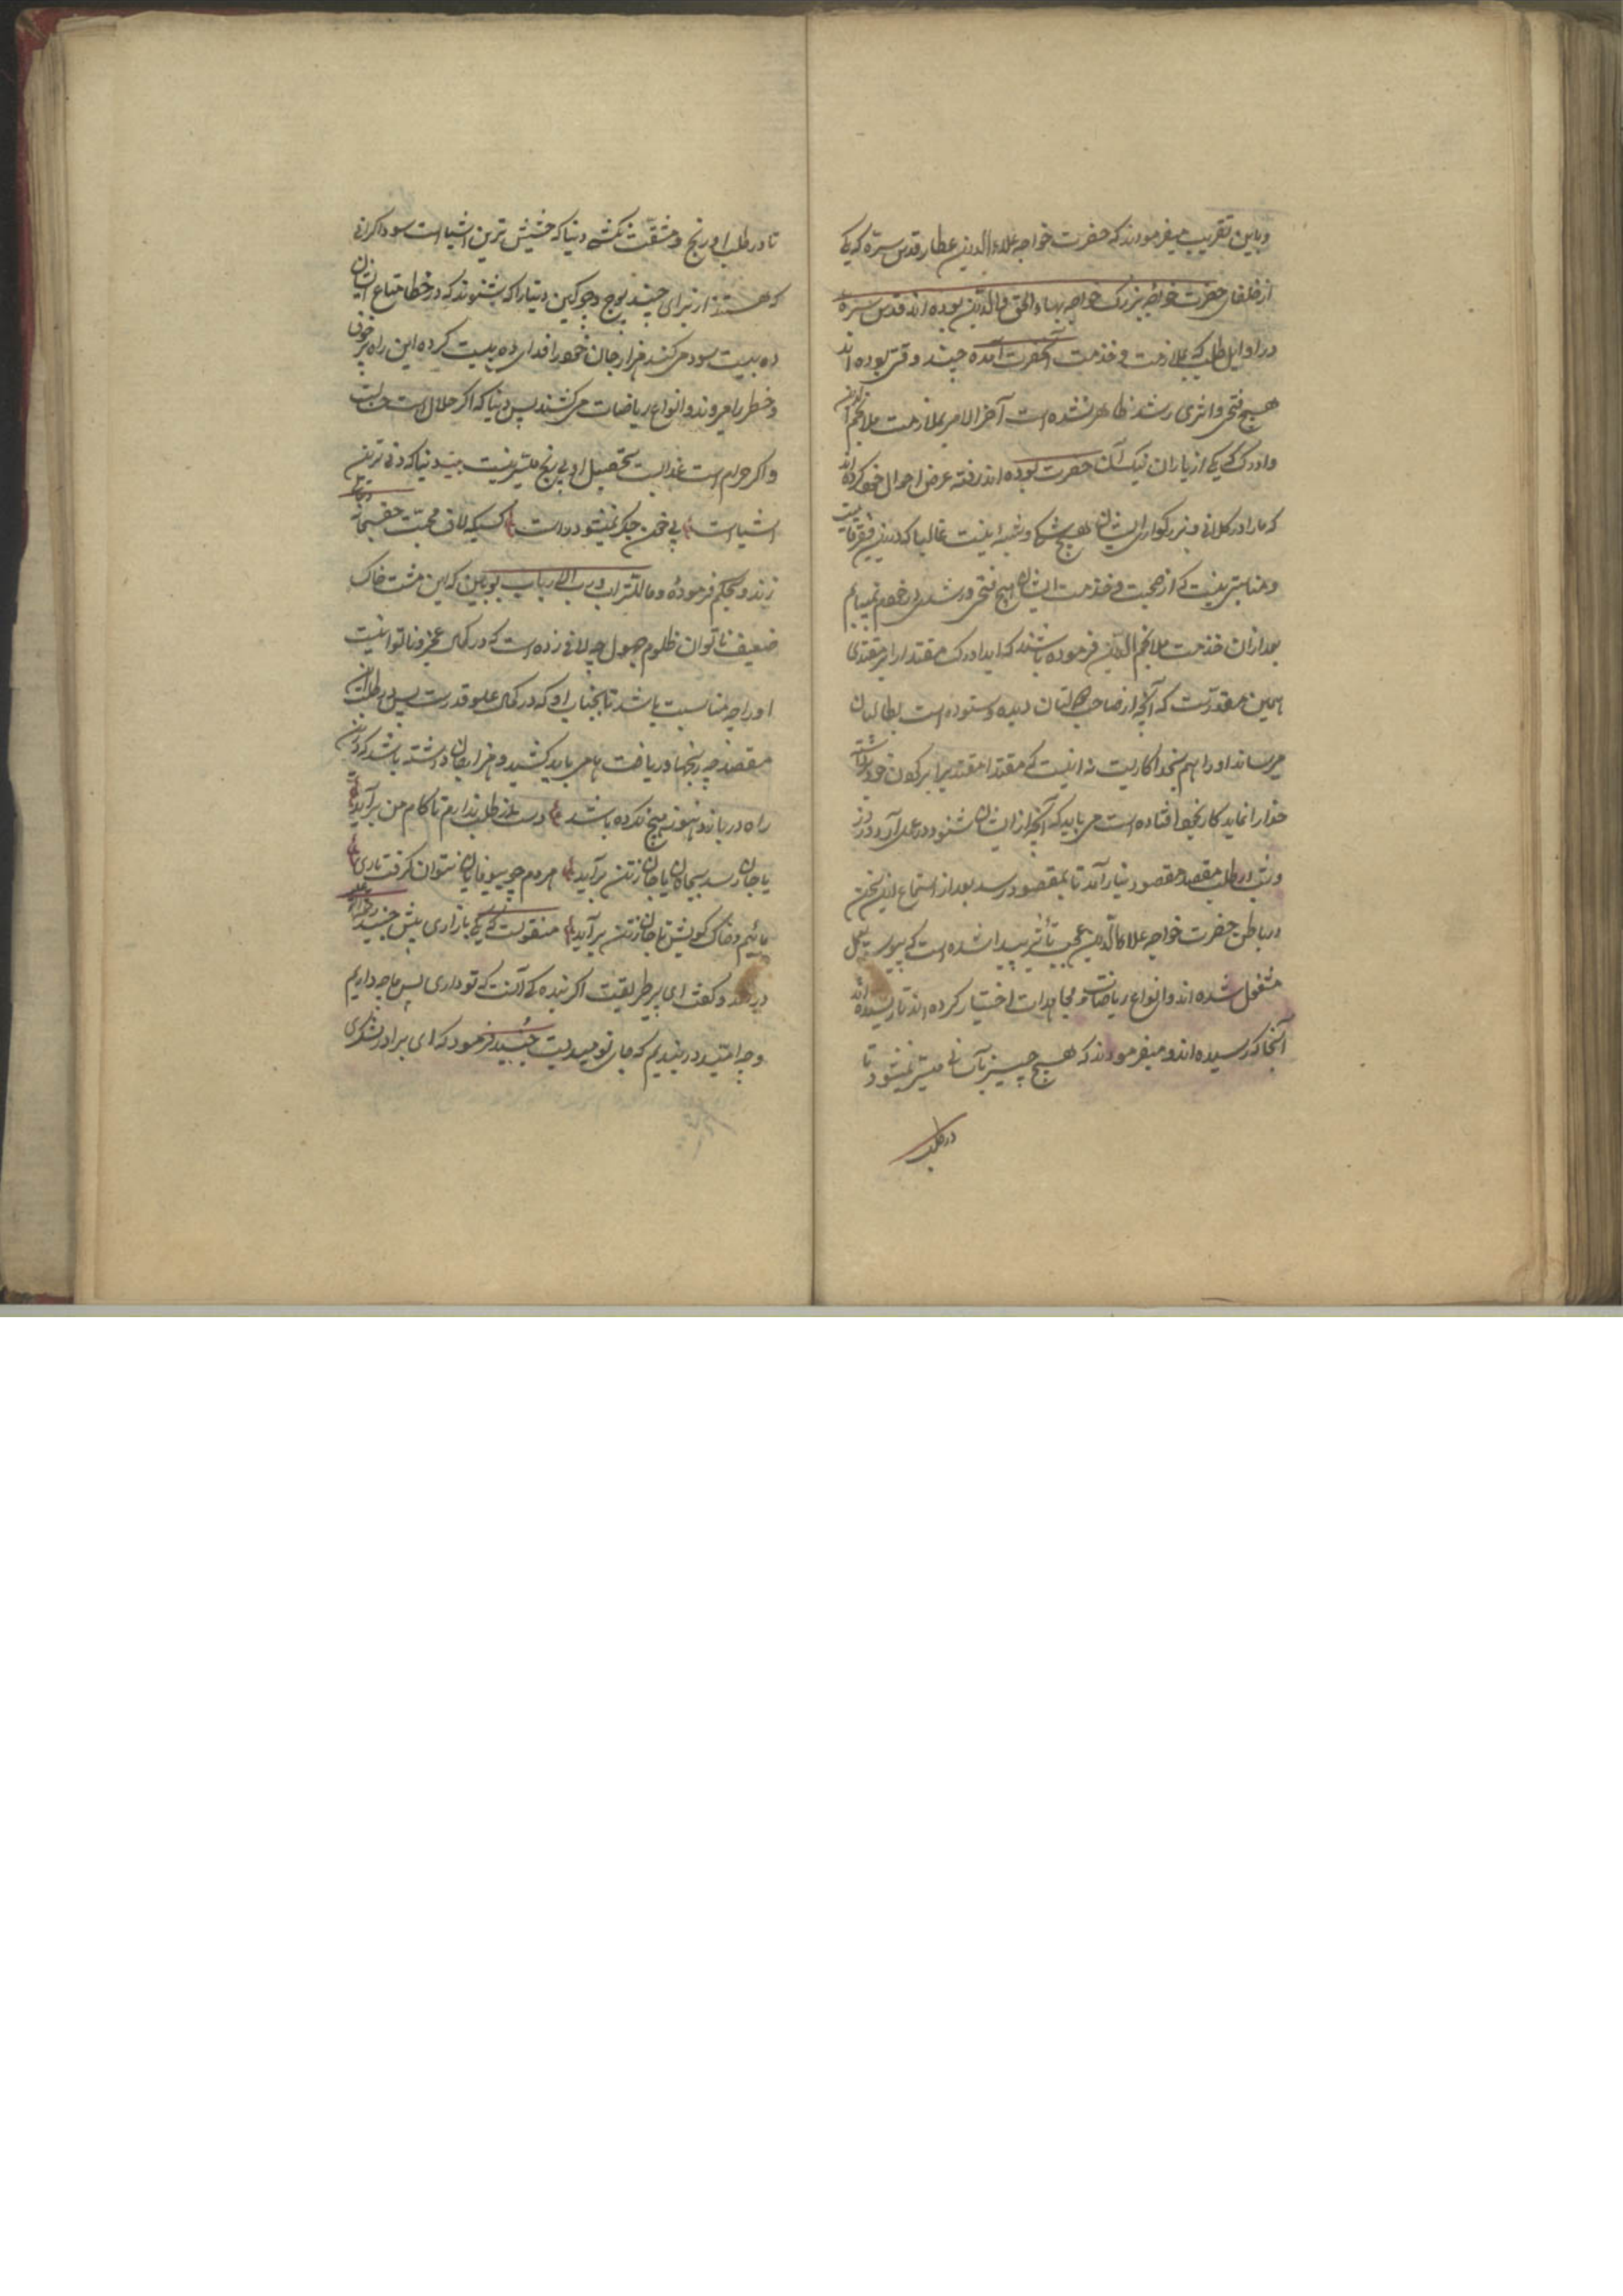 و باین تقریب میفرمودند که حضرت خواجه علاء الدین عطار قدس سره که یکی
از خلفای حضرت خواجه بزرگ خواجه بهاء الحق والدین بوده اند قدس سره
در اوایل طلب که بملازمت و خدمت آنحضرت آمده چند وقتی بوده اند
هیچ فتحی و اثری رشد ظاهر نشده است آخر الامر بملازمت ملا نجم الدین
دادرک که یکی از یاران نیک آن حضرت بوده اند رفته عرض احوال خود کرده اند
که ما را در کلانی و بزرکواری ایشان هیچ شک و شبه نیست غالبا که درین فقیر قابلیت
و مناسبتی نیست که از صحبت و خدمت ایشان هیچ فتحی و رشدی در خود نمییابم
بعد ازان خدمت ملا نجم الدین فرموده باشند که ای دادرک مقتدا را بر مقتدی
همین مقدارست که آنچه از صاحب دولتان دیده و ستوده است بطالبان
میرساند او را هم بخود کاریست نه اینست که مقتدا مقتدی را بر گردن خود
خدا را نماید کار بخود افتاده است می باید که آنچه از ایشان شنود در عمل آرد و روز
و شب در طلب مقصد و مقصود نیارامد تا بمقصود رسد بعد از استماع این سخن
در باطن حضرت خواجه علاء الدین عجب تأثیر پیدا شده است که پیوسته بعمل
مشغول شده اند و انواع ریاضات و مجاهدات اختیار کرده اند تا رسیده اند
آنجا که رسیده اند و میفرمودند که هیچ چیز بآسانی میسر نمیشود تا
در طلب
تا در طلب او رنج و مشقت نکشد دنیا که خسیس ترین اشیا است سوداکرانی
که هستند از برای چند پوچ و چرکین دنیا را که شنوند که در خطا متاع ایشان
ده بیست سود می کند هزار جان خود را فدای ده بیست کرده این راه پر خوف
و خطر را میروند و انواع ریاضات می کشند پس دنیا که اکر حلال است حساب
و اکر حرام است عذابست تحصیل او بی رنج میسر نیست دنیا که دنی ترین
اشیاست بی خون جگر نمیشود دوست کسیکه لاف محبت حق سبحانه
زند و بحکم فرموده و ما للتراب و رب الارباب ببین که این مشت خاک
ضعیف ناتوان ظلوم جهول چه لافی زده است که در کمال عجز و ناتوانیست
او را چه مناسبت باشد تا بجناب او که در کمال علو قدرت پس در طلب آن
مقصد چه رنجها و ریاضت ها می باید کشید و هزار جان داشته باشد که در این
راه در بازد هنوز هیچ نکرده باشد دست از طلب ندارم تا کام من بر آید
یا جان رسد بجانان یا جان ز تن بر آید هر دم چو بیوفایان نتوان کرفت یاری
مائیم و خاک کویش تا جان ز تن بر آید منقولست که یکی بازاری پیش جنید
در آمد و کفت ای پیر طریقت اکر بنده کی آنست که تو داری پس ما چه داریم
و چه امید در بندیم که جای نومیدیست جنید فرمود که ای برادر لشکری